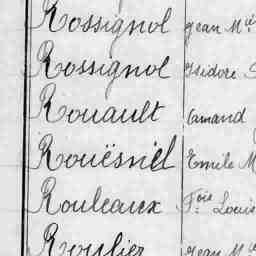 Rossignol Jean Mie
Rossignol Isidore
Rouault Amand
Rouësnel Emile M
Rouleaux Fois Louis
Roulier Jean Mie